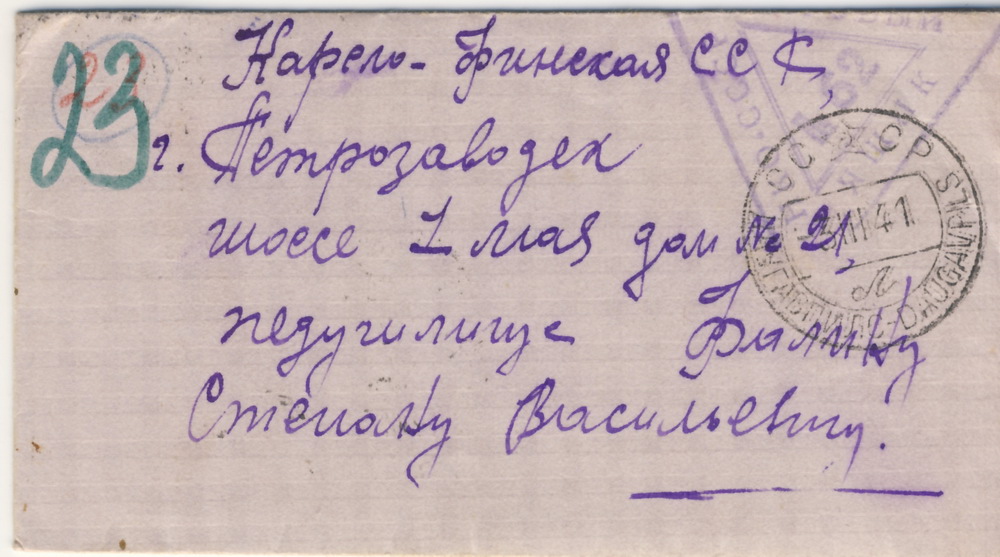 23
Карело-Финская ССР,
г. Петрозаводск
шоссе 1 мая дом № 21,
педучилище Фалину
Степану Васильевичу.
СССР
41
DAUGAVPILS